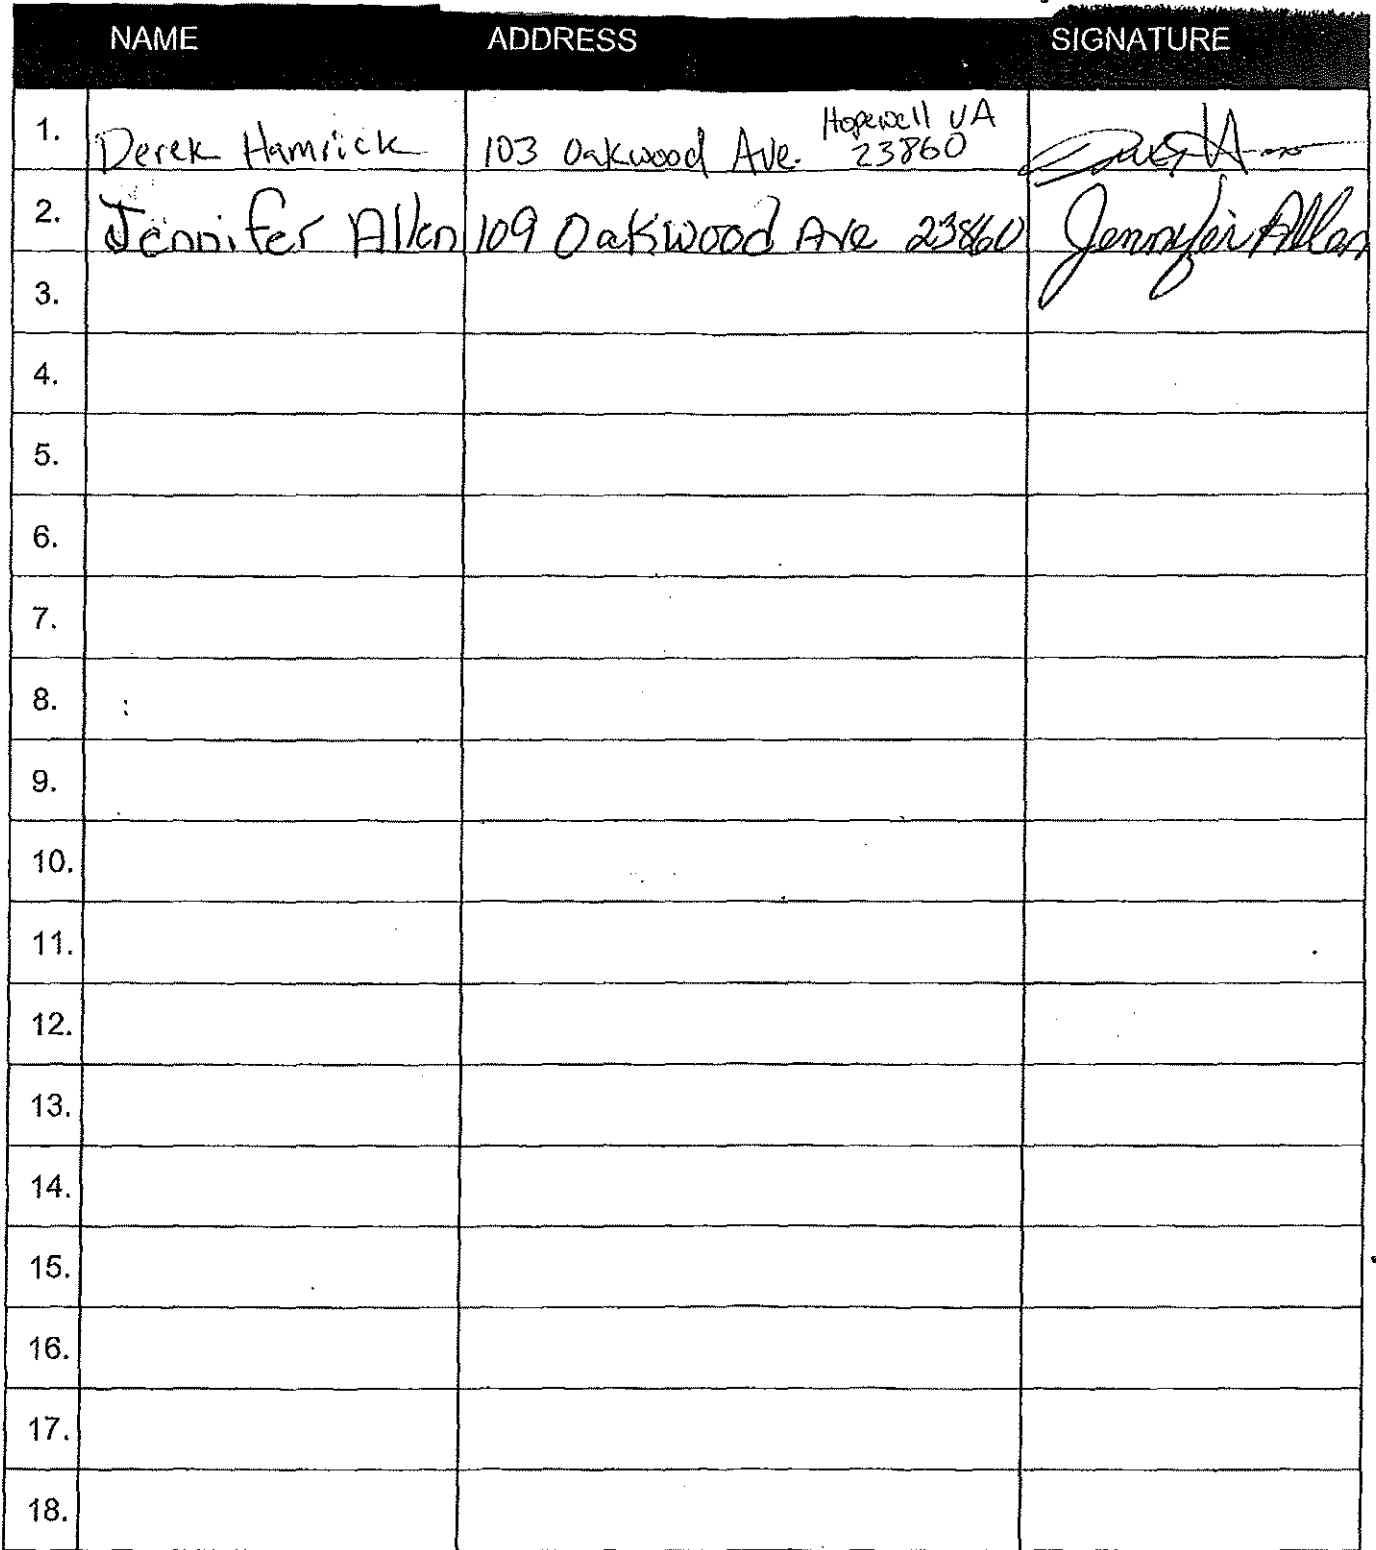 NAME ADDRESS SIGNATURE
1. Derek Hamrick 103 Oakwood Ave. Hopewell VA 23860
2. Jennifer Allen 109 Oakwood Ave 23860 Jennifer Allen
3.
4.
5.
6.
7.
8.
9.
10.
11.
12.
13.
14.
15.
16.
17.
18.